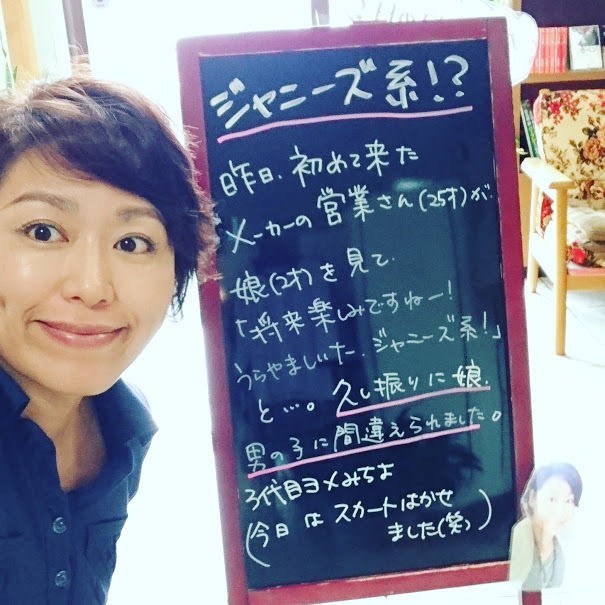 ジャニーズ系!?
昨日、初めて来た
メーカーの営業さん(25才)が、
娘(2才)を見て、
「将来楽しみですねー!
うらやましいた、ジャニーズ系!」
と…。久し振りに娘、
男の子に間違えられました。
3代目ヨメみちよ
(今日はスカートはかせ
ました(笑))